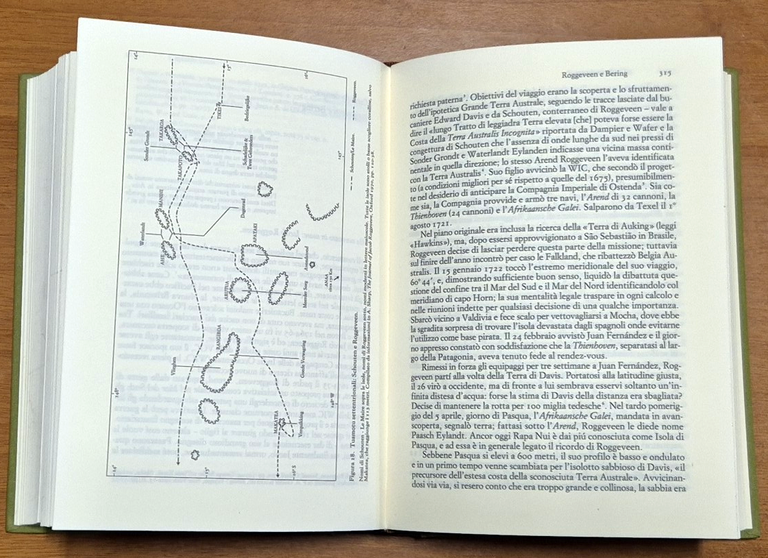 Figura 18. Tuamotu settentrionali: Schouten e Roggeveen.
Sonder Grondt
TAKAROA
TAKAPOTO
TIKEI
Bedrieglijke
Schadelijke &
Twee Gebroeders
MANIHI
Waterlandt
AHE
Dageraad
APATAKI
ARUTUA
Avondstond
Meerder Zorg
RANGIROA
Vlieghen
Goede Verwagting
MAKATEA
Verquikking
Roggeveen e Bering 315
richiesta paterna⁴. Obiettivi del viaggio erano la scoperta e lo sfruttamen-
to dell'ipotetica Grande Terra Australe, seguendo le tracce lasciate dal bu-
caniere Edward Davis e da Schouten, conterraneo di Roggeveen – vale a
dire il «lungo Tratto di leggiadra Terra elevata [che] poteva forse essere la
Costa della Terra Australis Incognita» riportata da Dampier e Wafer e la
congettura di Schouten che l'assenza di onde lunghe da sud nei pressi di
Sonder Grondt e Waterlandt Eylanden indicasse una vicina massa conti-
nentale in quella direzione; lo stesso Arend Roggeveen l'aveva identificata
con la Terra Australis⁵. Suo figlio avvicinò la WIC, che secondò il proget-
to (a condizioni migliori per sé rispetto a quelle del 1675), presumibilmen-
te nel desiderio di anticipare la Compagnia Imperiale di Ostenda⁶. Sia co-
me sia, la Compagnia provvide e armò tre navi, l'Arend di 32 cannoni, la
Thienhoven (24 cannoni) e l'Afrikaansche Galei. Salparono da Texel il 1°
agosto 1721.
Nel piano originale era inclusa la ricerca della «Terra di Auking» (leggi
«Hawkins»), ma, dopo essersi approvvigionato a São Sebastião in Brasile,
Roggeveen decise di lasciar perdere questa parte della missione; tuttavia
sul finire dell'anno incontrò per caso le Falkland, che ribattezzò Belgia Au-
stralis. Il 15 gennaio 1722 toccò l'estremo meridionale del suo viaggio,
60°44', e, dimostrando sufficiente buon senso, liquidò la dibattuta que-
stione del confine tra il Mar del Sud e il Mar del Nord identificandolo col
meridiano di capo Horn; la sua mentalità legale traspare in ogni calcolo e
nelle riunioni indette per qualsiasi decisione di una qualche importanza.
Sbarcò vicino a Valdivia e fece scalo per vettovagliarsi a Mocha, dove ebbe
la sgradita sorpresa di trovare l'isola devastata dagli spagnoli onde evitarne
l'utilizzo come base pirata. Il 24 febbraio avvistò Juan Fernández e il gior-
no appresso constatò con soddisfazione che la Thienhoven, separatasi al lar-
go della Patagonia, aveva tenuto fede al rendez-vous.
Rimessi in forza gli equipaggi per tre settimane a Juan Fernández, Rog-
geveen partì alla volta della Terra di Davis. Portatosi alla latitudine giusta,
il 26 virò a occidente, ma di fronte a lui sembrava esservi soltanto un'in-
finita distesa d'acqua: forse la stima di Davis della distanza era sbagliata?
Decise di mantenere la rotta per 100 miglia tedesche⁷. Nel tardo pomerig-
gio del 5 aprile, giorno di Pasqua, l'Afrikaansche Galei, mandata in avan-
scoperta, segnalò terra; fattasi sotto l'Arend, Roggeveen le diede nome
Paasch Eylandt. Ancor oggi Rapa Nui è dai piú conosciuta come Isola di
Pasqua, ed a essa è in generale legato il ricordo di Roggeveen.
Sebbene Pasqua si elevi a 600 metri, il suo profilo è basso e ondulato
e in un primo tempo venne scambiata per l'isolotto sabbioso di Davis, «il
precursore dell'estesa costa della sconosciuta Terra Australe». Avvicinan-
dosi via via, si resero conto che era troppo grande e collinosa, la sabbia era